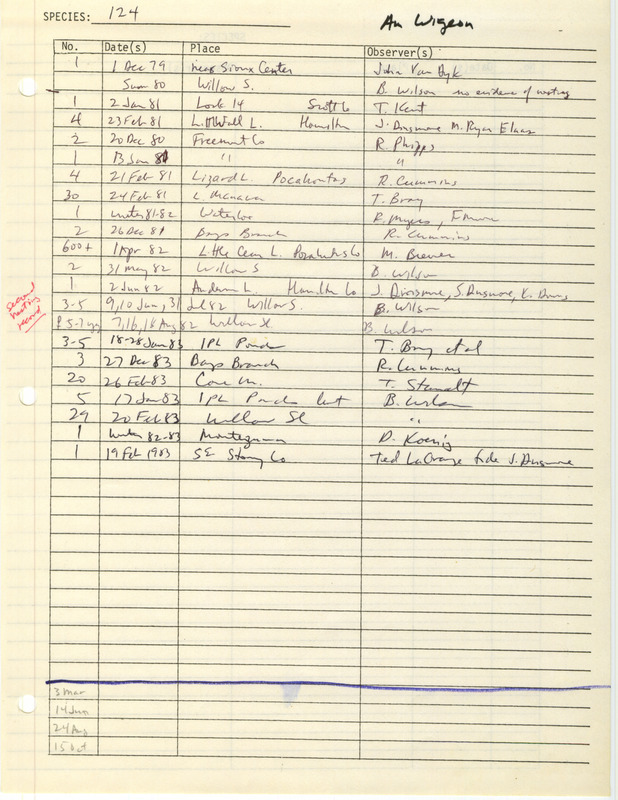 SPECIES: 124 Am Wigeon
No. Date(s) Place Observer(s)
1 1 Dec 79 near Sioux Center John Van Dyk
Sum 80 Willow S. B. Wilson no evidence of nesting
1 2 Jan 81 Lock 14 Scott Co T. Kent
4 23 Feb 81 Little Wall L. Hamilton J. Dinsmore M. Ryan
2 20 Dec 80 Freemont Co R. Phipps
1 13 Jan 81 " "
4 21 Feb 81 Lizard L. Pocahontas R. Cummins
30 24 Feb 81 L. Manawa T. Bray
1 winter 81-82 Waterloo R. Myers,
2 26 Dec 81 Bays Branch R. Cummins
600+ 1 Apr 82 Little Clear L. Pocahontas Co M. Brewer
2 31 May 82 Willow S B. Wilson
1 2 Jun 82 Anderson L. Hamilton Co J. Dinsmore, S. Dinsmore, K. Dinsmore
second nesting record
3-5 9, 10 Jun, 31 Jul 82 Willow S. B. Wilson
7, 16, 18 Aug 82 Willow Sl. B. Wilson
3-5 18-28 Jan 83 IPL Ponds T. Bray et al
3 27 Dec 83 Bays Branch R. Cummins
20 26 Feb 83 T. Staudt
5 17 Jan 83 IPL Ponds B. Wilson
29 20 Feb 83 Willow Sl "
1 winter 82-83 Montezuma D. Koenig
1 19 Feb 1983 SE Story Co Ted LaGrange fide J. Dinsmore
3 Mar
14 Jun
24 Aug
15 Oct